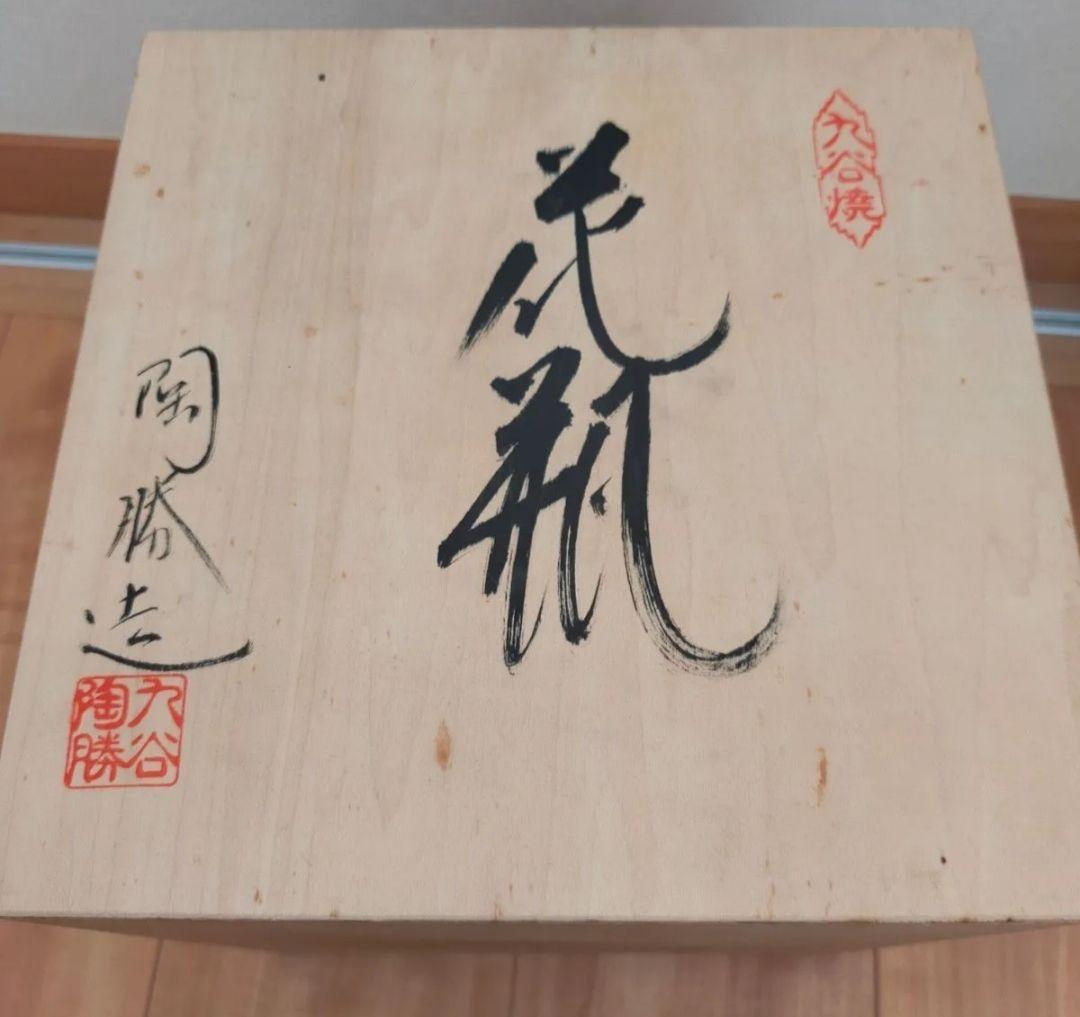 九谷燒
花瓶
陶勝造
九谷
陶勝